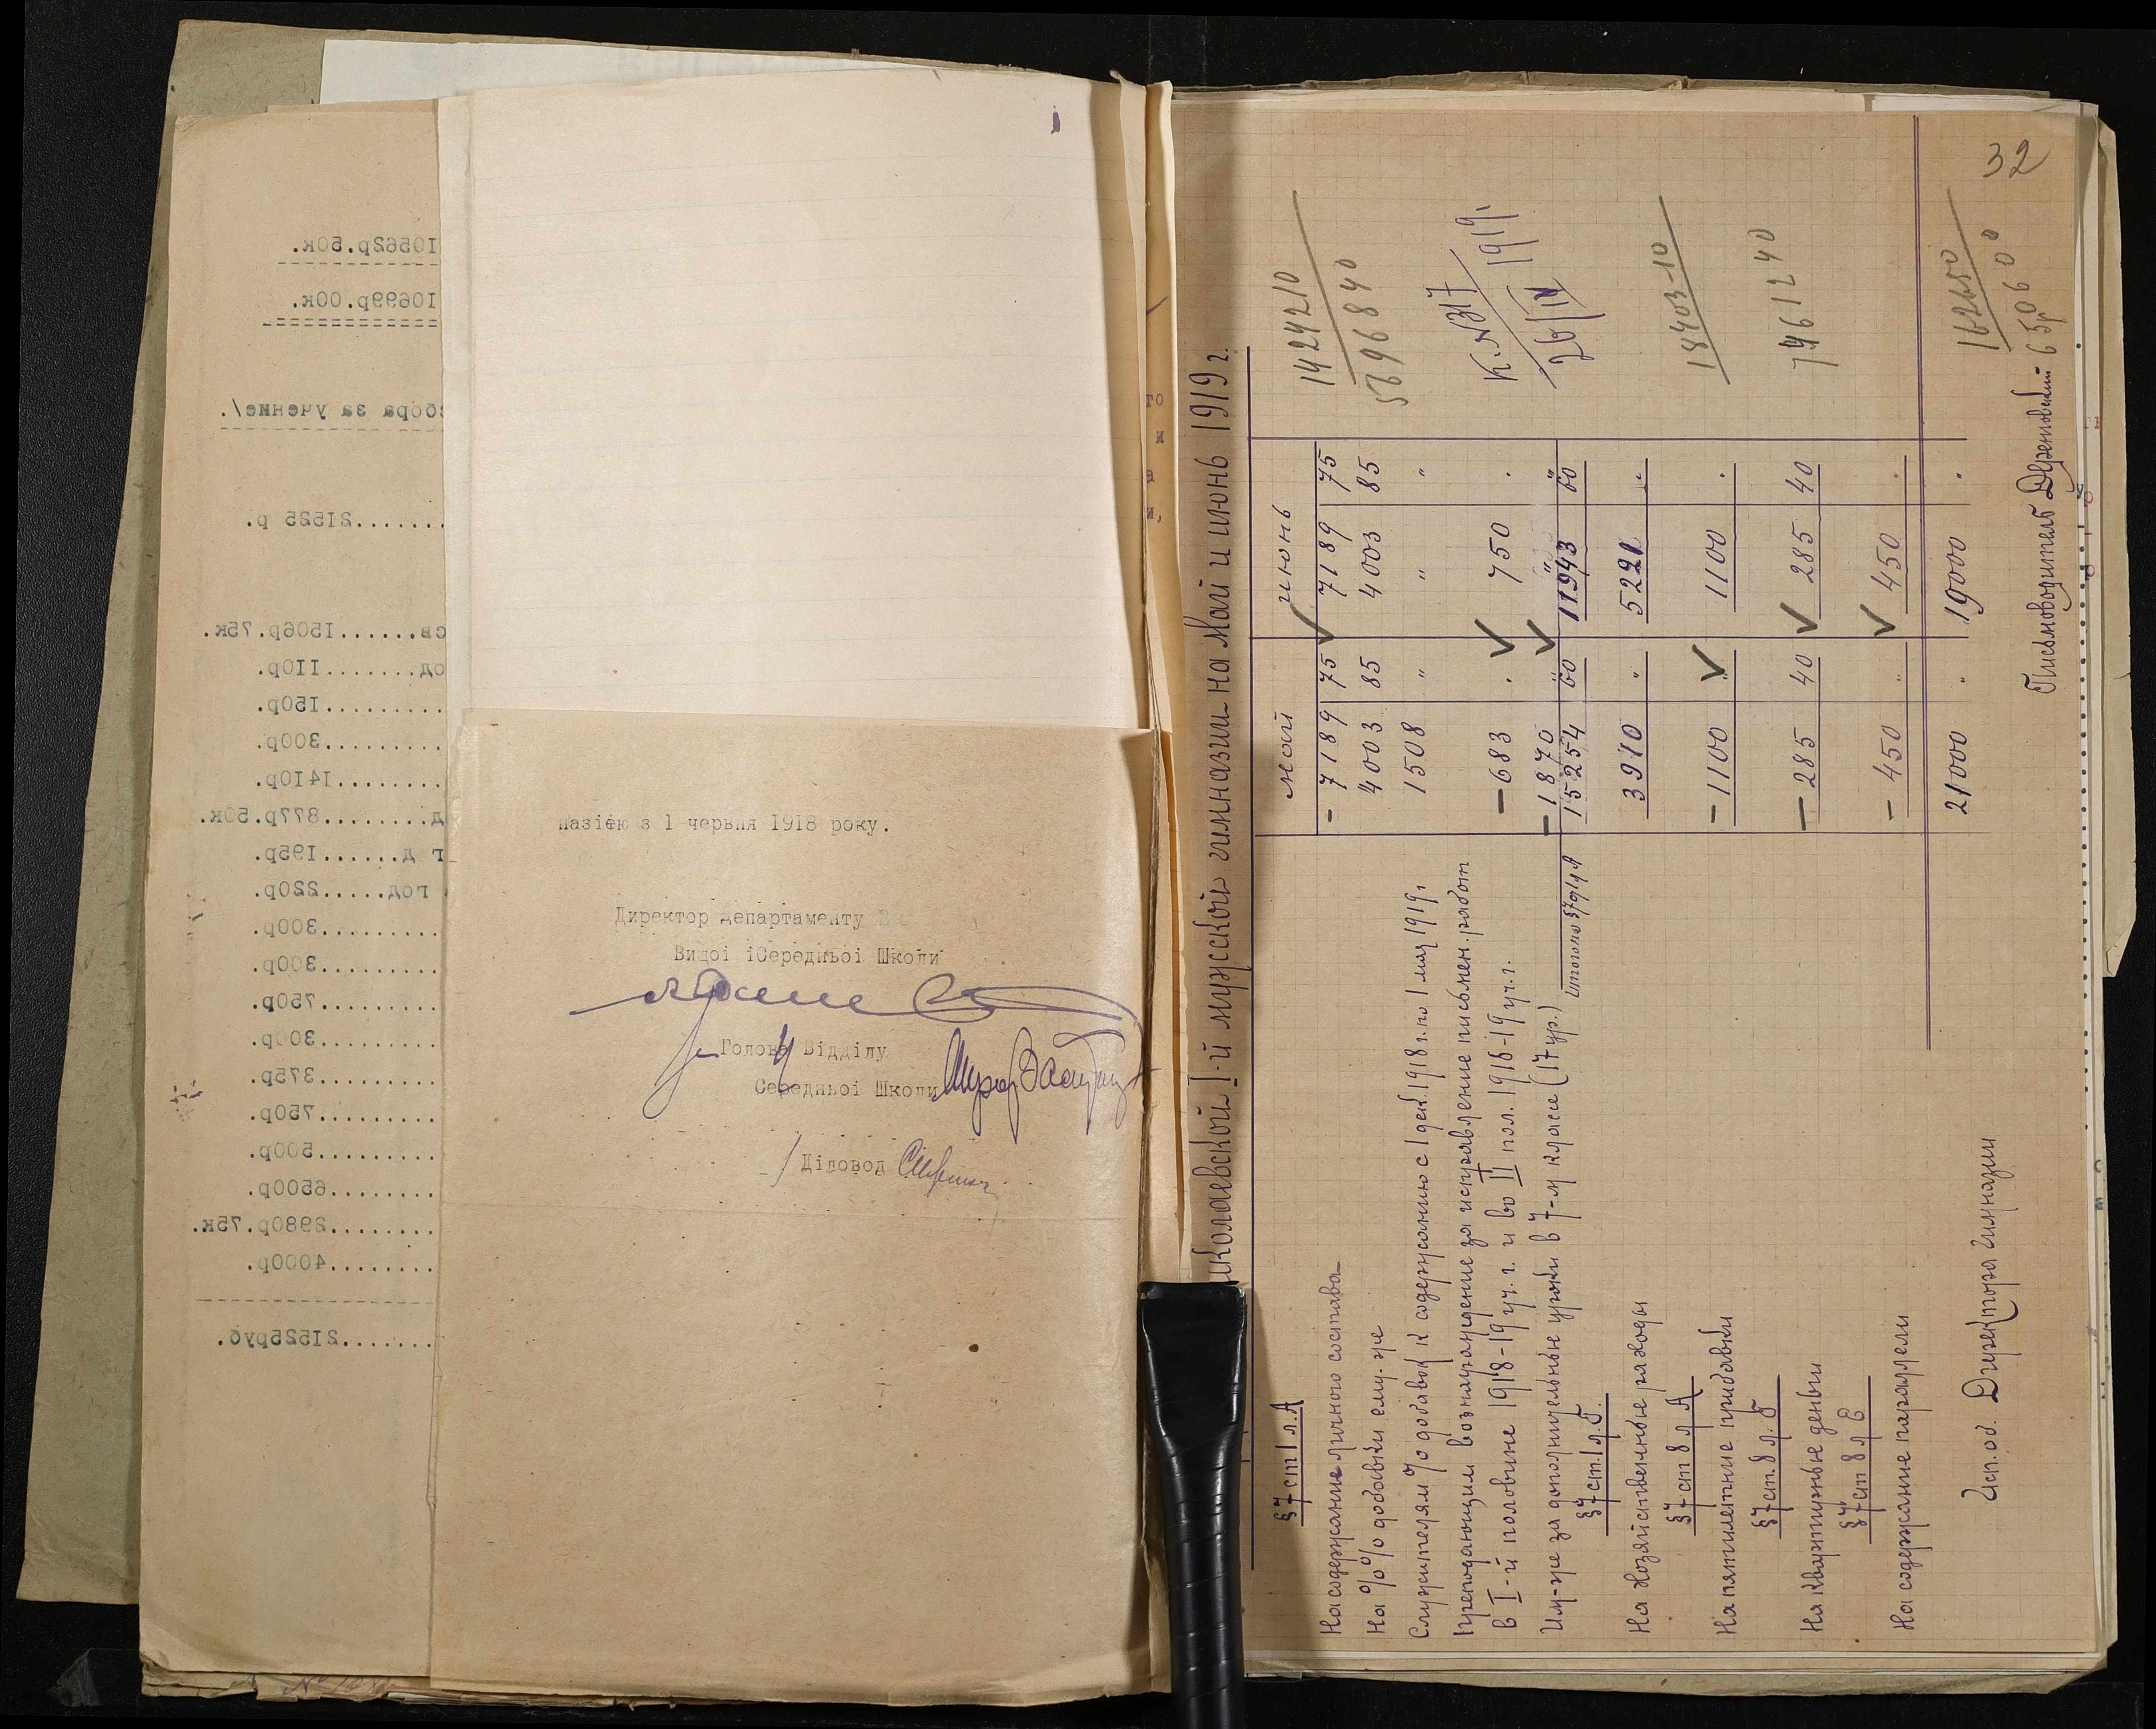 10562р.50к.
10699р.00к.
сбора за учение/.
.......21525 р.
.......1506р.75к.
........110р.
........150р.
........300р.
........1410р.
........877р.50к.
........195р.
год.....220р.
........300р.
........300р.
........750р.
........300р.
........375р.
........750р.
........500р.
........6500р.
........2980р.75к.
........4000р.
.......21525руб.
назією з 1 червня 1918 року.
Директор департаменту В
Вищої іСередньої Школи
Голова Відділу
Середньої Школи
Діловод
го
и
а
и,
32
николаевской I-й мужской гимназии на Май и июнь 1919 г.
май июнь
§7 ст 1 л.А
На содержание личного состава – 7189 75 7189 75 1424210
На %% добавки ему-же 4003 85 4003 85 5696840
Служителям % добавок к содержанию с 1 дек. 1918 г. по 1 мая 1919 г. 1508 " " "
Преподающим вознаграждение за исправление письмен. работ
в I-й половине 1918-19 уч. г. и во II пол. 1918-19 уч. г. – 683 . 750 . К. №317
26/IV 1919
Им-же за дополнительные уроки в 7-м классе (17 ур.) – 1870 " " "
Итого по §7 ст 1 л А 15254 60 11943 60
§7 ст. 1 л. Б.
На хозяйственные расходы 3910 " 5221 " 18403-10
§7 ст 8 л А
На пятилетние прибавки – 1100 " 1100 .
§7 ст. 8 л. Б
На квартирные деньги – 285 40 285 40 7461240
§7 ст 8 л В
На содержание параллели – 450 " 450 .
21000 " 19000 . 162650
650600
Исп. об. Директора гимназии
Письмоводитель